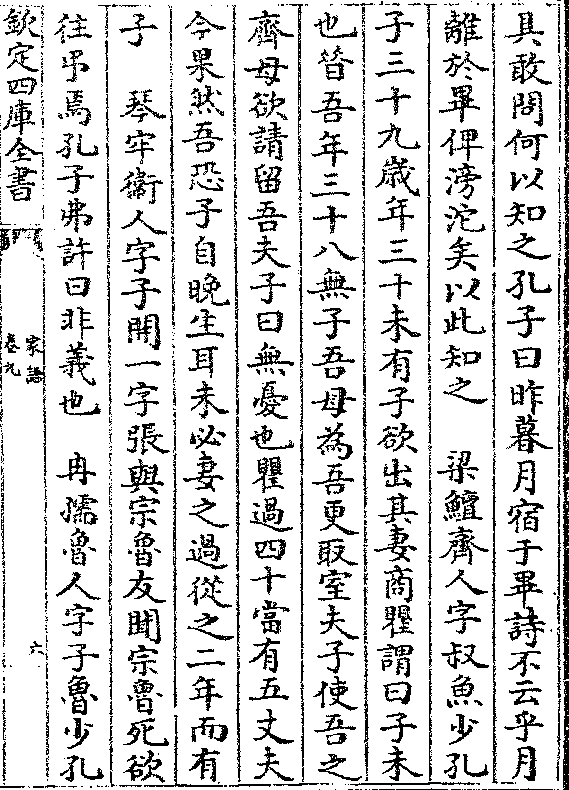 具敢問何以知之孔子曰昨暮月宿于畢詩不云乎月
離於畢俾滂沱矣以此知之　梁鱣齊人字叔魚少孔
子三十九歲年三十未有子欲出其妻商瞿謂曰子未
也昔吾年三十八無子吾母為吾更取室夫子使吾之
齊母欲請留吾夫子曰無憂也瞿過四十當有五丈夫
今果然吾恐子自晚生耳未必妻之過從之二年而有
子　琴牢衞人字子開一字張與宗魯友聞宗魯死欲
往弔焉孔子弗許曰非義也　冉儒魯人字子魯少孔
欽定四庫全書
家語
卷九
六